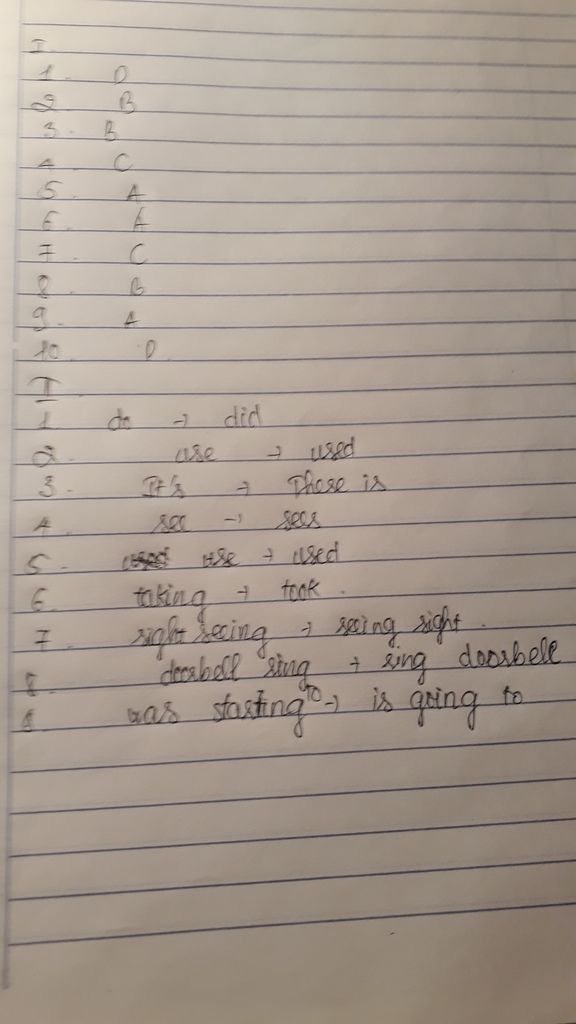 I.
1. D
2. B
3. B
4. C
5. A
6. A
7. C
8. B
9. A
10. D
II
1 do → did
2. use → used
3. It's → There is
4. see → sees
5. use → used
6. taking → took.
7. right seeing → seeing right.
8. doorbell ring → ring doorbell
8 was starting to → is going to